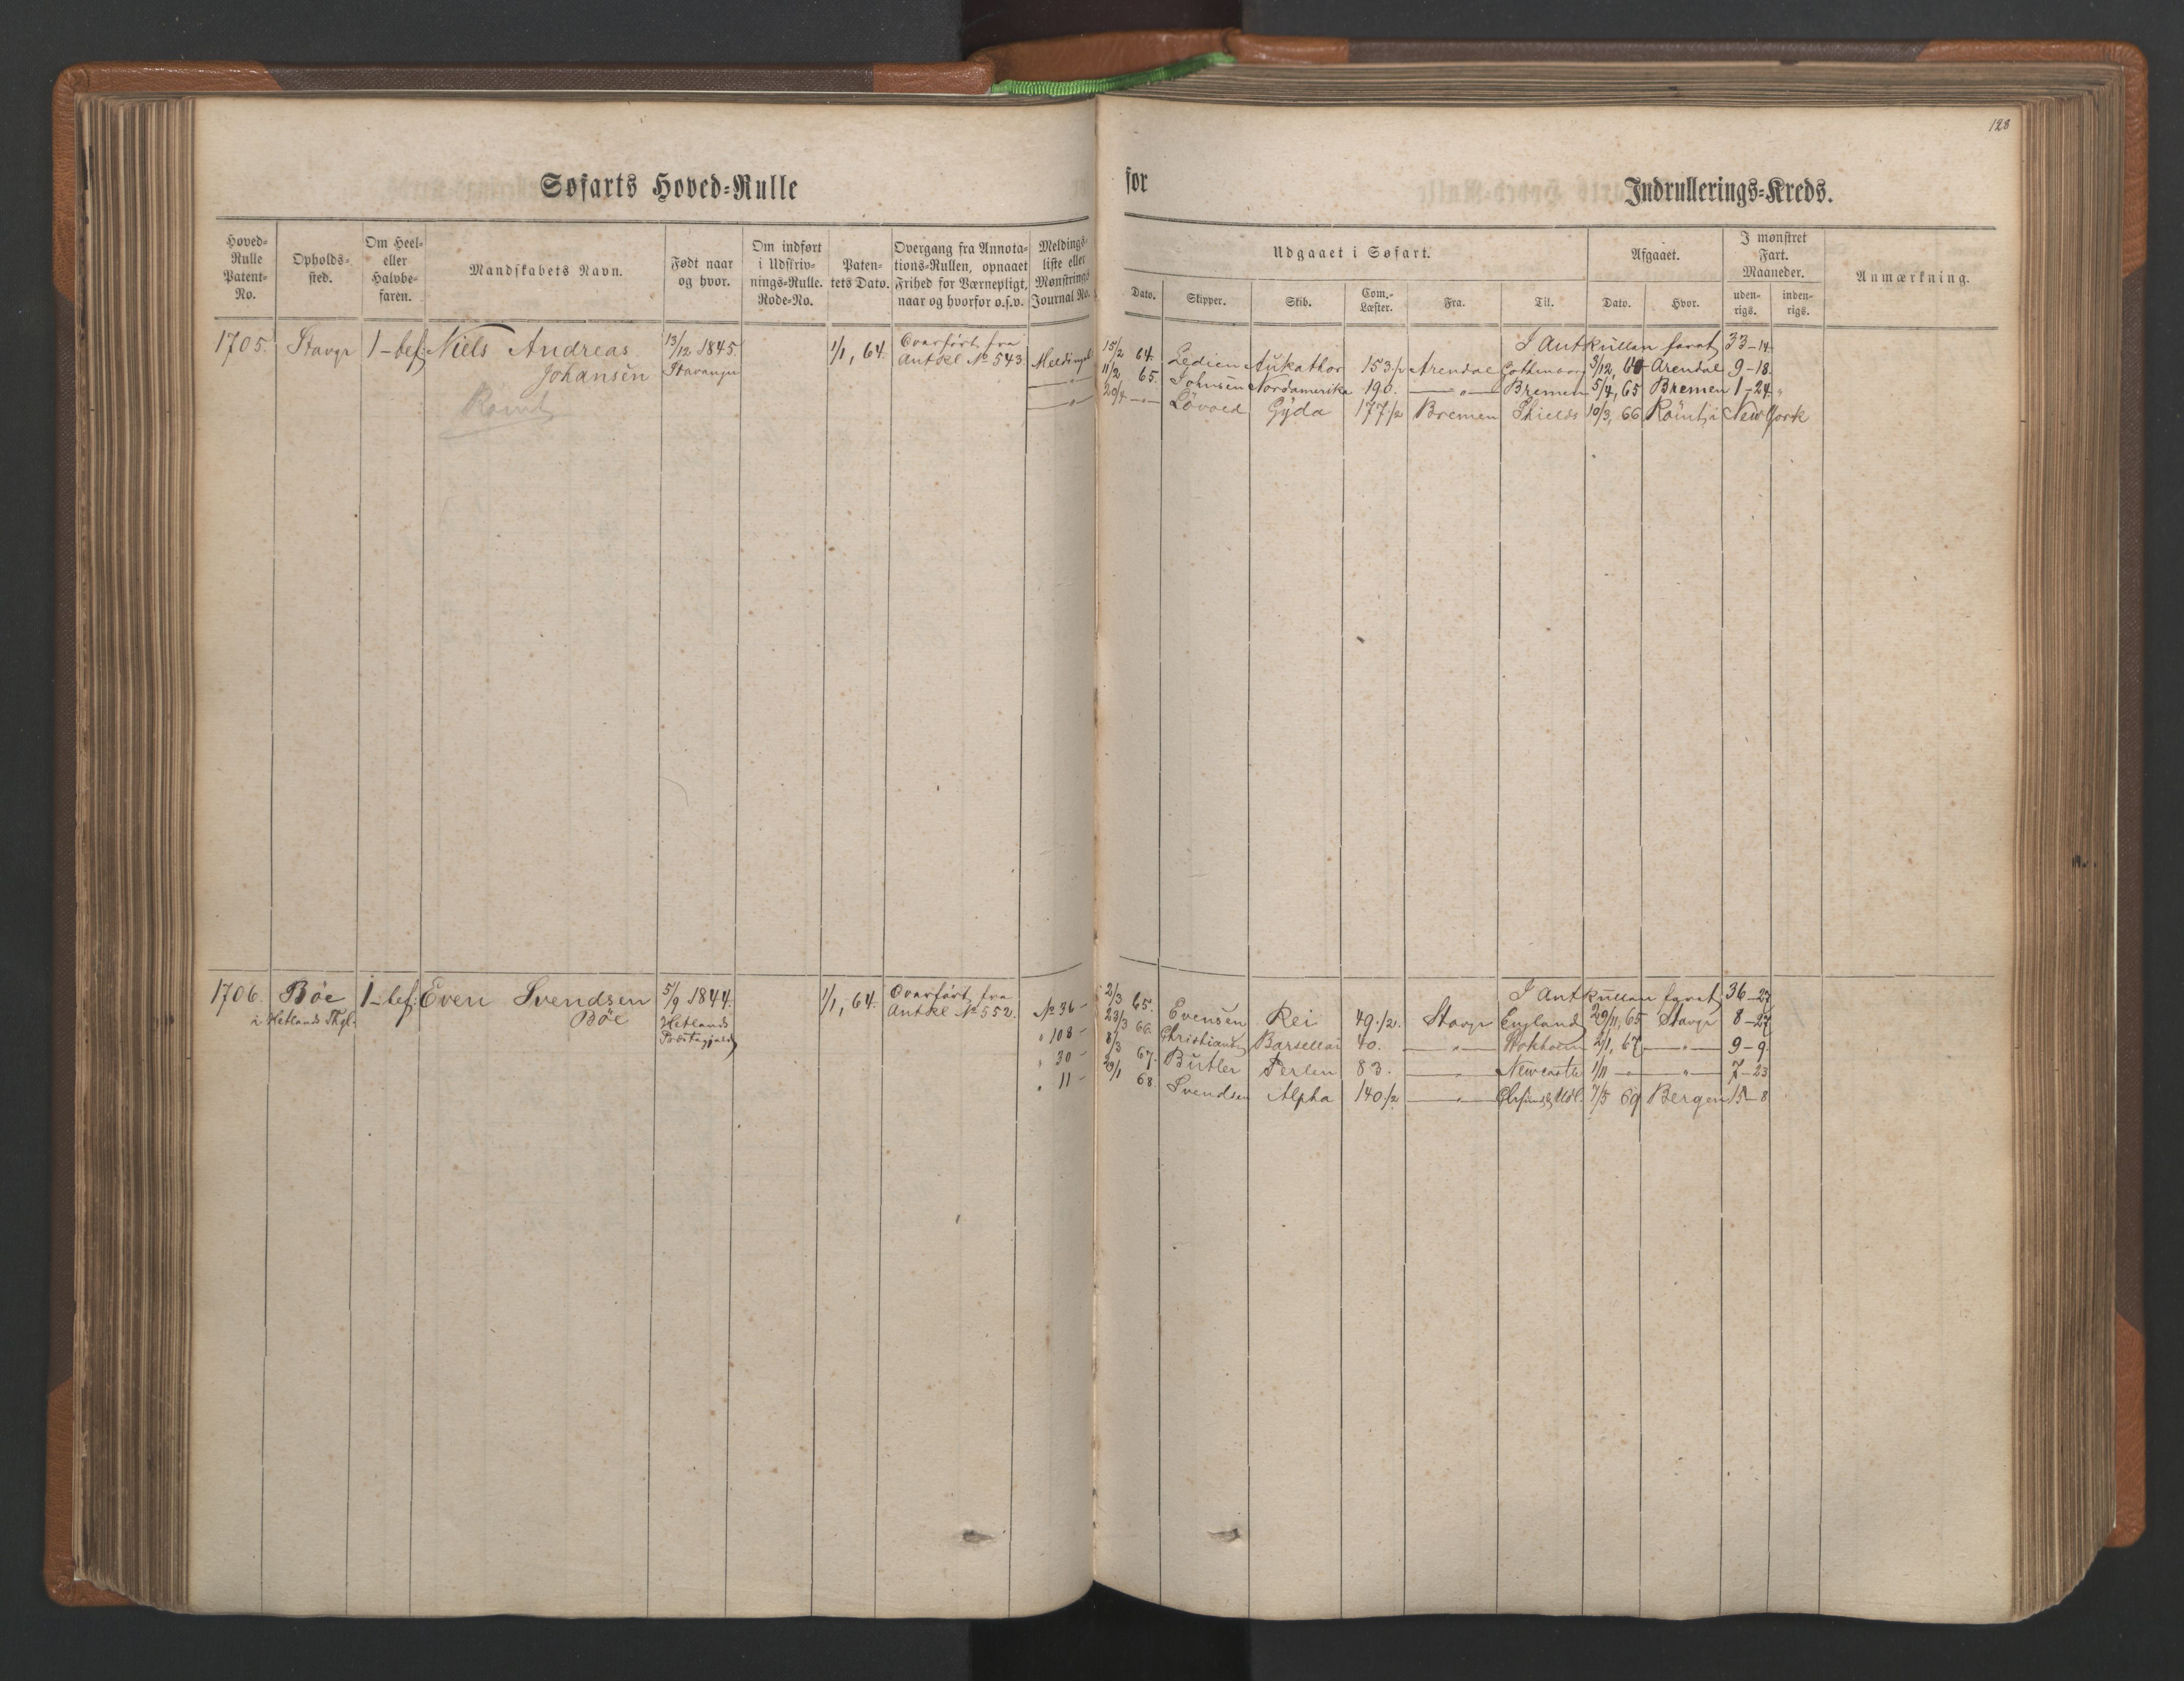 128
Søfarts Hoved=Rulle for Indrullerings=Kreds.
Hoved=Rulle Patent=No.
Opholds=sted.
Om Heel= eller Halvbe=faren.
Mandskabets Navn.
Født naar og hvor.
Om indført i Udskriv=nings=Rulle. Rode=No.
Paten=tets Dato.
Overgang fra Annota=tions=Rullen, opnaaet Frihed for Værnepligt, naar og hvorfor o.s.v.
Meldings=liste eller Mønstrings Journal No.
Udgaaet i Søfart.
Dato. Skipper. Skib. Com.=Læster. Fra. Til.
Afgaaet.
Dato. Hvor.
I mønstret Fart. Maaneder.
uden=rigs. inden=rigs.
Anmærkning.
1705. Stavgr 1-bef: Niels Andreas 13/12 1845. 1/1, 64. Overført fra I Antrullen faret 33-14.
Johansen Stavanger Antrl № 543 Meldingsl 15/2 64. Aukathor 153 1/2 Arendal Gottenborg 3/12, 64 Arendal 9-18.
Rømt -"- 11/2 65. Johnsen Nordamerika 190. -"- Bremen 5/4, 65 Bremen 1-24. "
-"- 20/4 -"- Løvoed Gyda 177 1/2 Bremen Shields 10/3, 66 Rømt i New York
1706. Bøe 1-bef: Even Svendsen 5/9 1844. 1/1, 64. Overført fra I Antrullen faret 36-27
i Hetlands Thgl. Bøe Hetlands Antrl № 552. № 36- 2/3 65. Evensen Rei 49 1/2. Stavgr England 29/11, 65 Stavgr 8-27
Præstegjeld " 108- 23/3 66. Christiansen 40. -"- Stokholm 2/1, 67 -"- 9-9.
" 30- 8/3 67. Butler Perlen 83. -"- Newcastle 1/11 -"- -"- 7-23
" 11- 29/1 68. Svendsen Alpha 140 1/2 -"- 7/5 69 Bergen 15-8